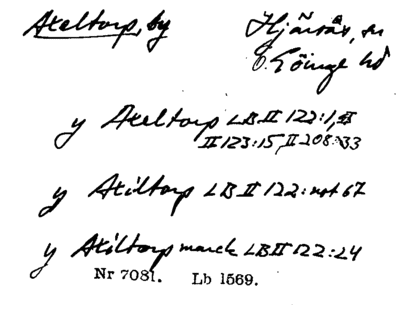 Axeltorp, by Hjärsås, sn
Ö. Göinge hd
y Axeltorp LB II 122:1,
II 123:15, II 208:33
y Axiltorp LB II 122: not 67
y Axiltorp marck LB II 122:24
Nr 7081. Lb 1569.